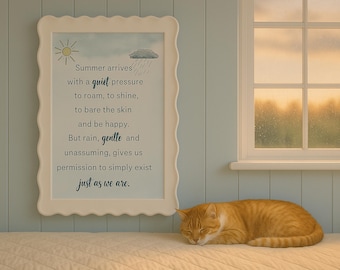 Summer arrives
with a quiet pressure
to roam, to shine,
to bare the skin
and be happy.
But rain, gentle and
unassuming, gives us
permission to simply exist
just as we are.